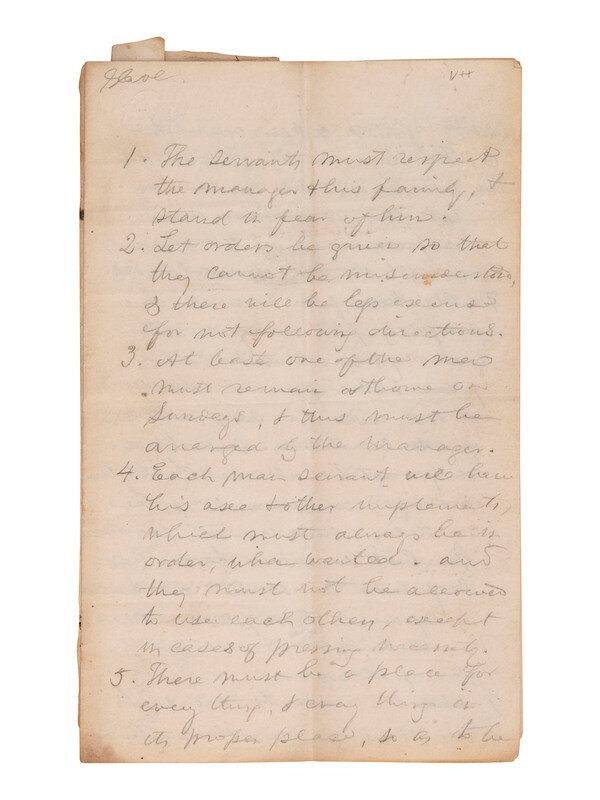 1. The servants must respect
the manager & his family, &
stand in fear of him.
2. Let orders be given so that
they cannot be misunderstood,
& there will be less excuse
for not following directions.
3. At least one of the men
must remain at home on
Sundays, & this must be
arranged by the manager.
4. Each man servant will have
his axe & other implements,
which must always be in
order, when wanted. and
they must not be allowed
to use each others, except
in cases of pressing necessity.
5. There must be a place for
every thing, & every thing in
its proper place, so as to be